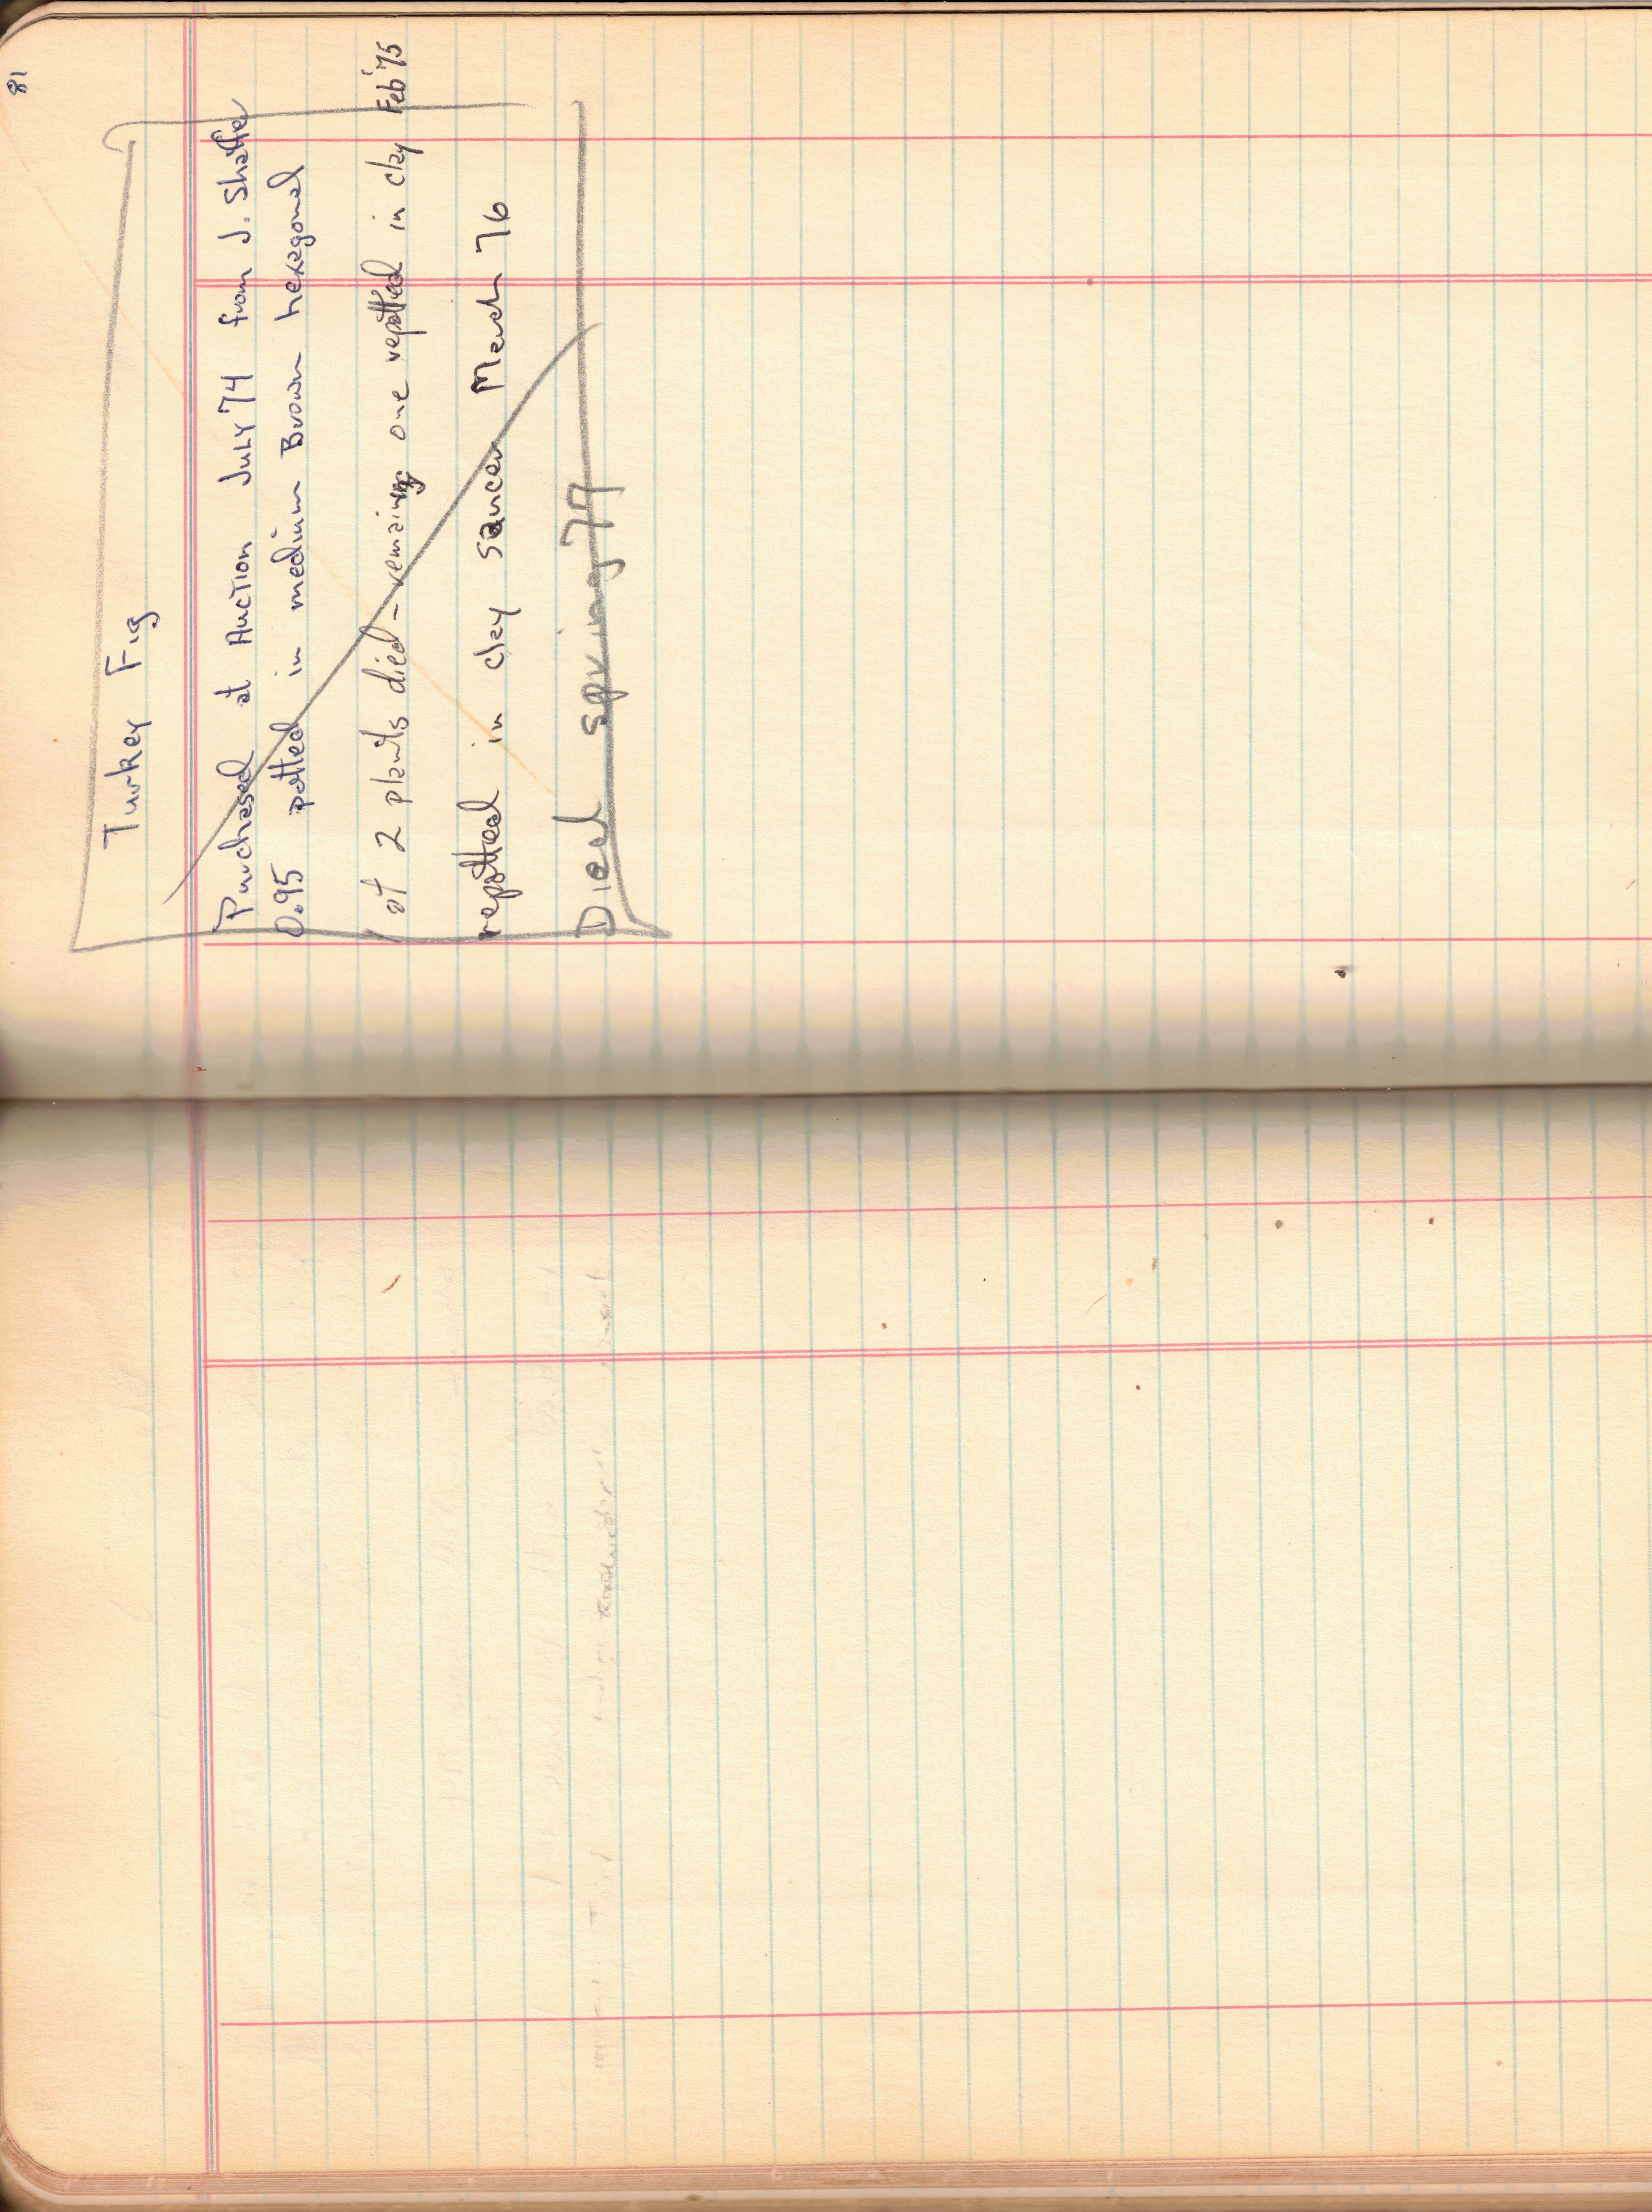 81
Turkey Fig
Purchased at Auction July 74 from J. Shaffer
0.95 potted in medium Brown hexagonal
1 of 2 plants died - remaining one repotted in clay Feb '75
repotted in clay saucer March 76
Died spring 77